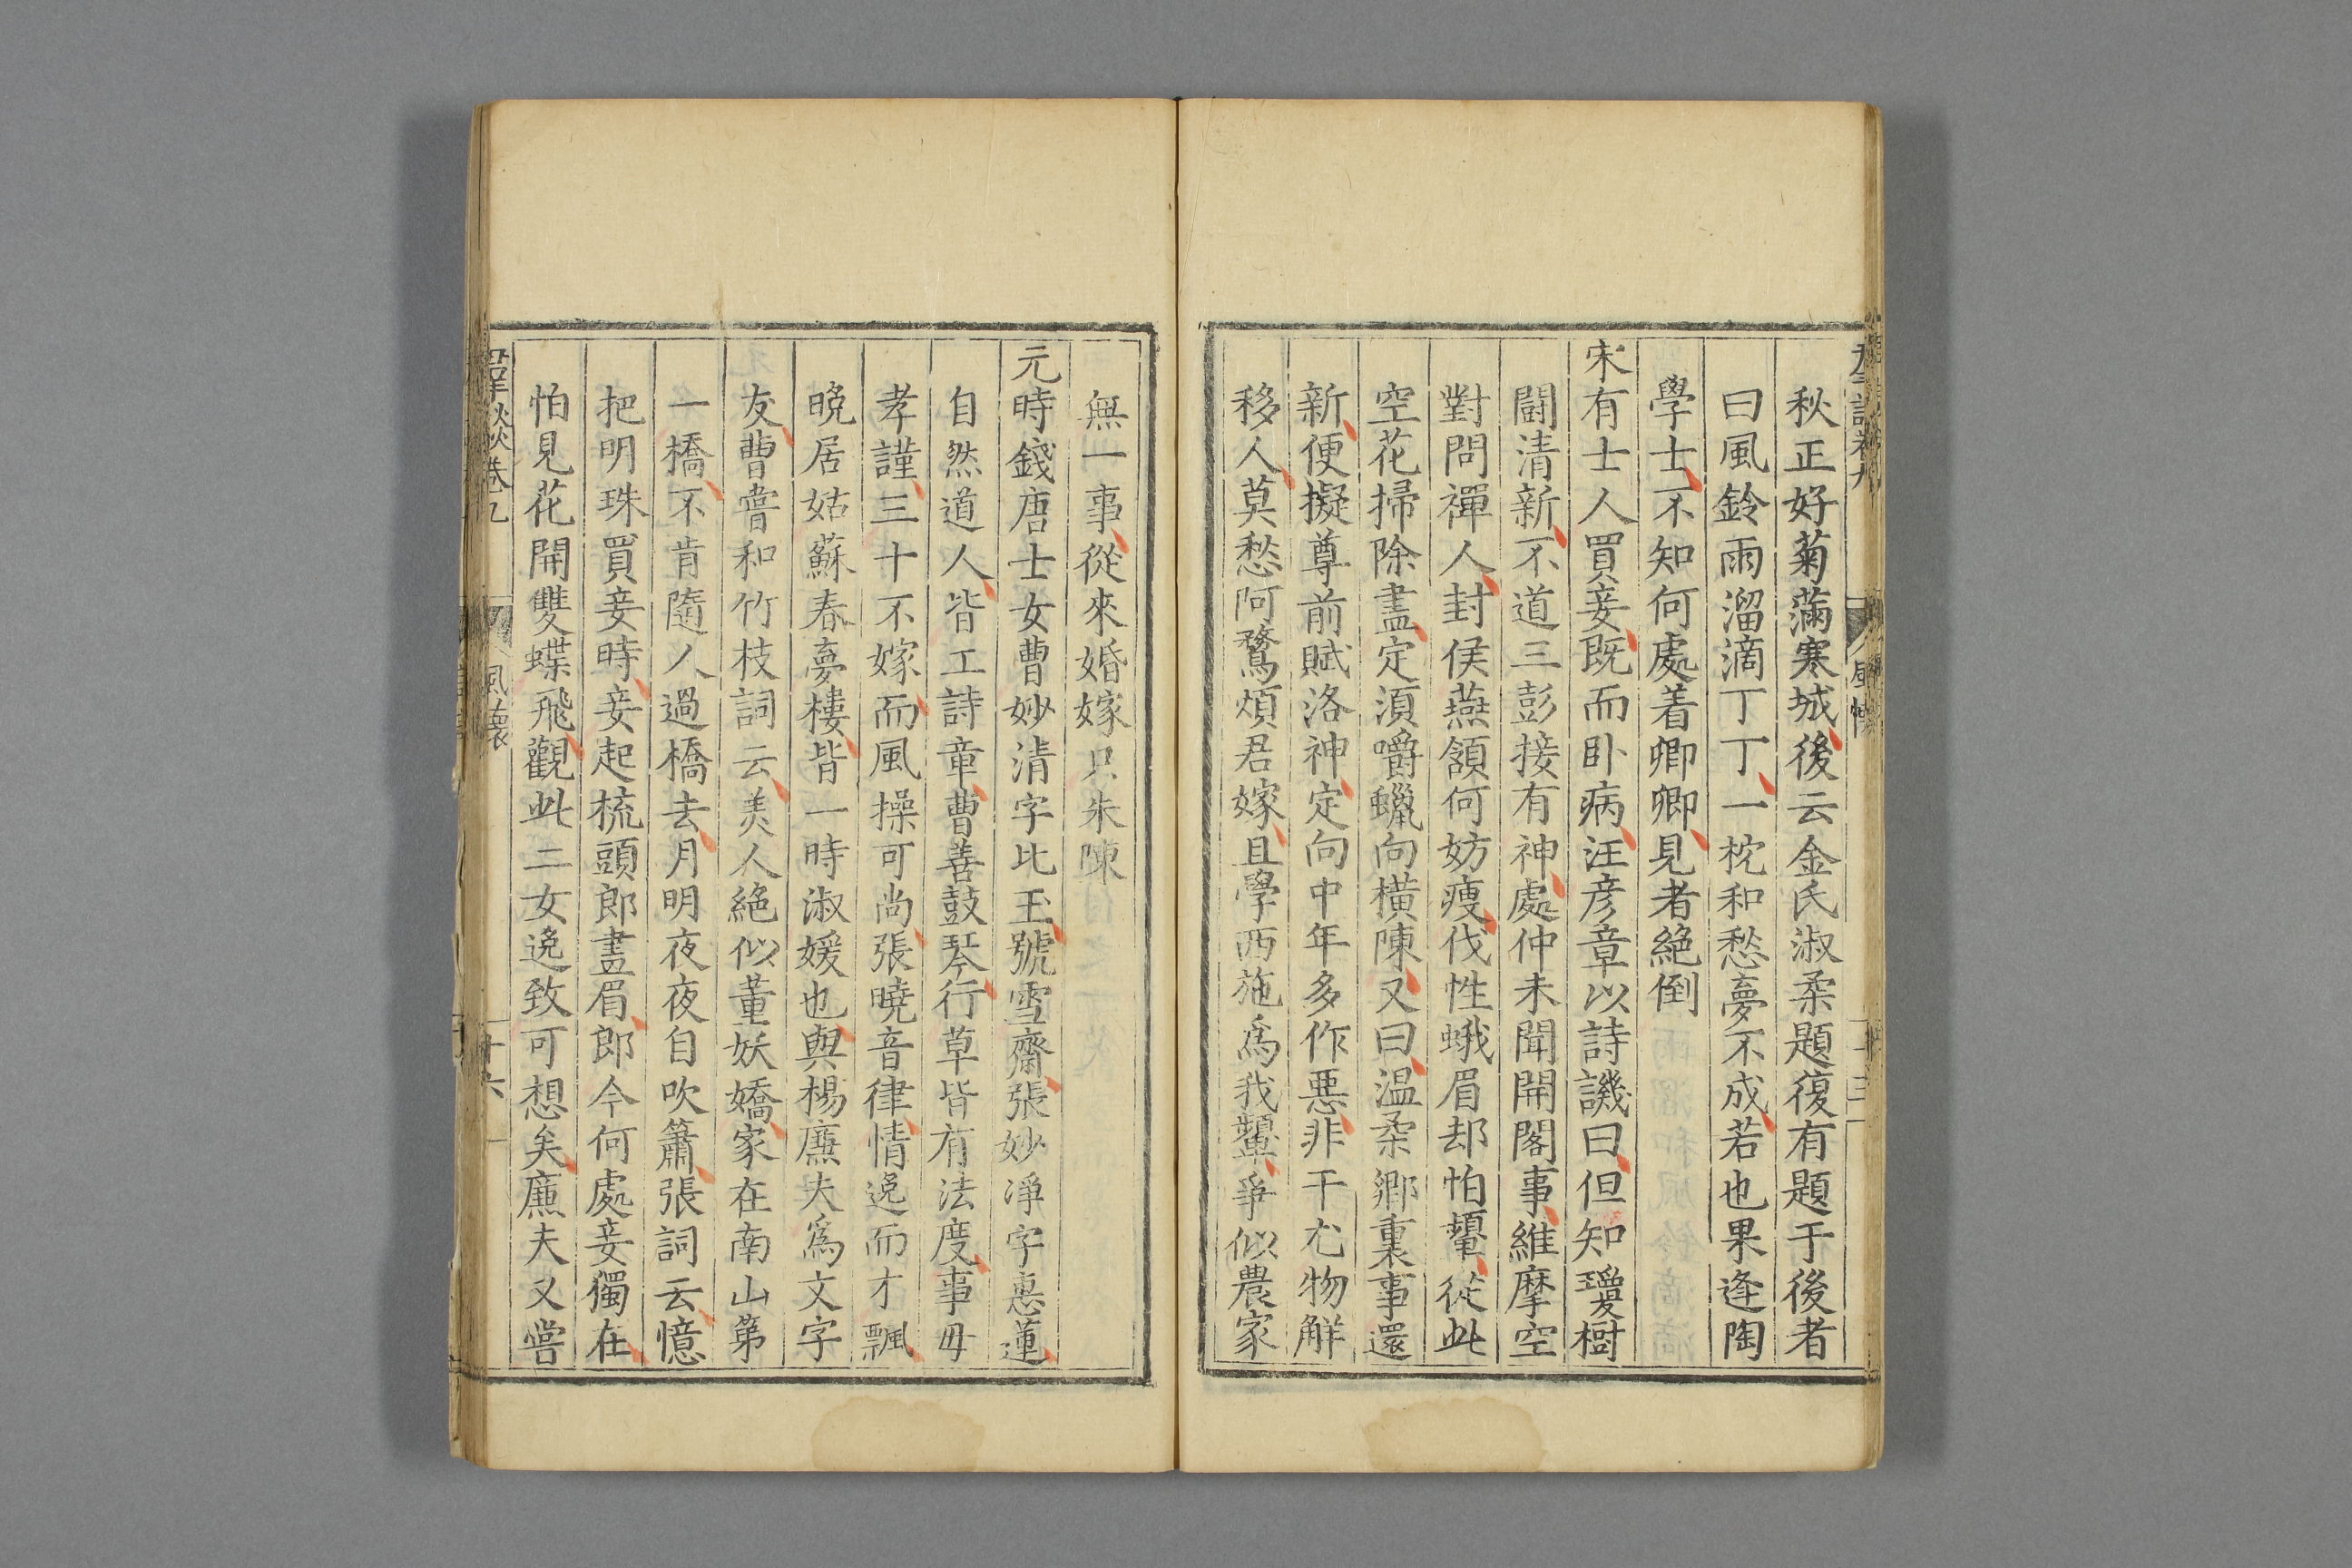 秋正好菊滿寒城後云金氏淑柔題復有題于後者
曰風鈴雨溜滴丁丁一枕和愁夢不成若也果逢陶
學士不知何處着卿卿見者絕倒
宋有士人買妾既而卧病汪彦章以詩譏曰但知瓊樹
鬪清新不道三彭接有神處仲未聞開閣事維摩空
對問禪人封侯燕頷何妨瘦伐性蛾眉却怕顰從此
空花掃除盡定湏嚼蠟向橫陳又曰温柔鄉裏事還
新便擬尊前賦洛神定向中年多作惡非干尤物解
移人莫愁阿鶩煩君嫁且學西施爲我顰爭似農家
無一事從來婚嫁只朱陳
元時錢唐士女曹妙清字比玉號雪齋張妙淨字惠蓮
自然道人皆工詩章曹善鼓琴行草皆有法度事母
孝謹三十不嫁而風操可尚張曉音律情逸而才飄
晚居姑蘇春夢樓皆一時淑媛也與楊廉夫爲文字
友曹嘗和竹枝詞云美人絕似董妖嬌家在南山第
一橋不肯隨人過橋去月明夜夜自吹簫張詞云憶
把明珠買妾時妾起梳頭郎畫眉郎今何處妾獨在
怕見花開雙蝶飛觀此二女逸致可想矣廉夫又嘗
羣談卷九
風懷
十六